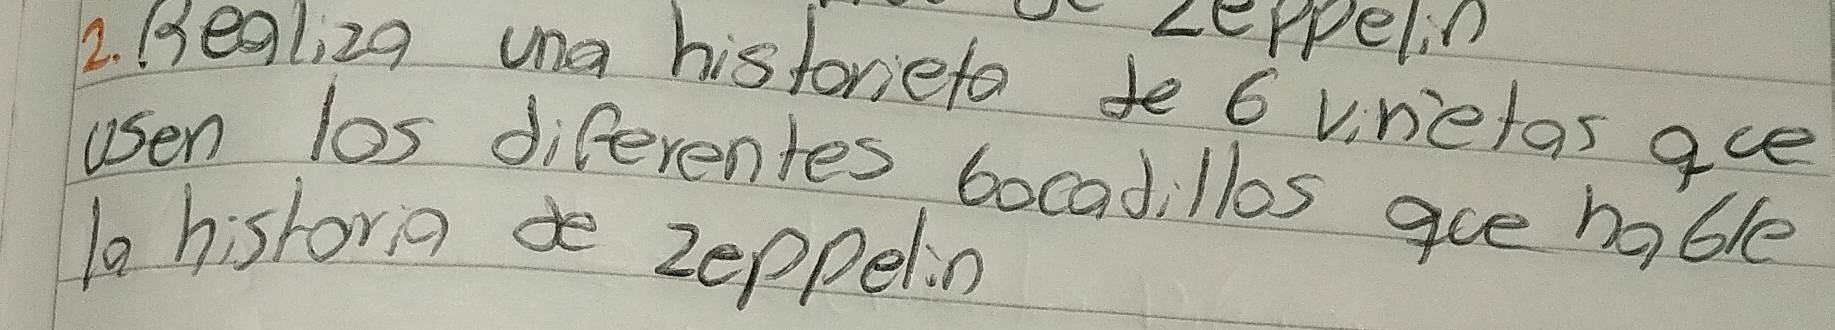 Zeppelin
2. Realiza una historieta de 6 viñetas que
usen los diferentes bocadillos que hable
la historia de zeppelin